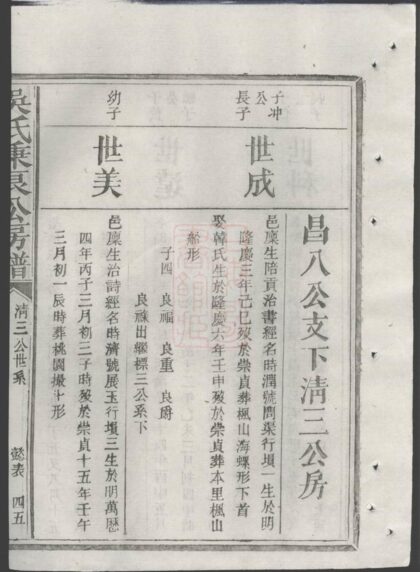 昌八公支下清三公房
子冲公
長子
世成
邑廩生陪貢治書經名時潤號問渠行塤一生於明
隆慶三年己巳歿於崇貞葬楓山海螺形下首
娶韓氏生於隆慶六年壬申歿於崇貞葬本里楓山
船形
子四 良福 良重 良爵
良祿出繼標三公系下
幼子
世美
邑廩生治詩經名時濟號展玉行塤三生於明萬曆
四年丙子三月初二子時歿於崇貞十五年壬午
三月初一辰時葬桃園撮斗形
吳氏乘良公房譜
清三公世系
懿表 四五